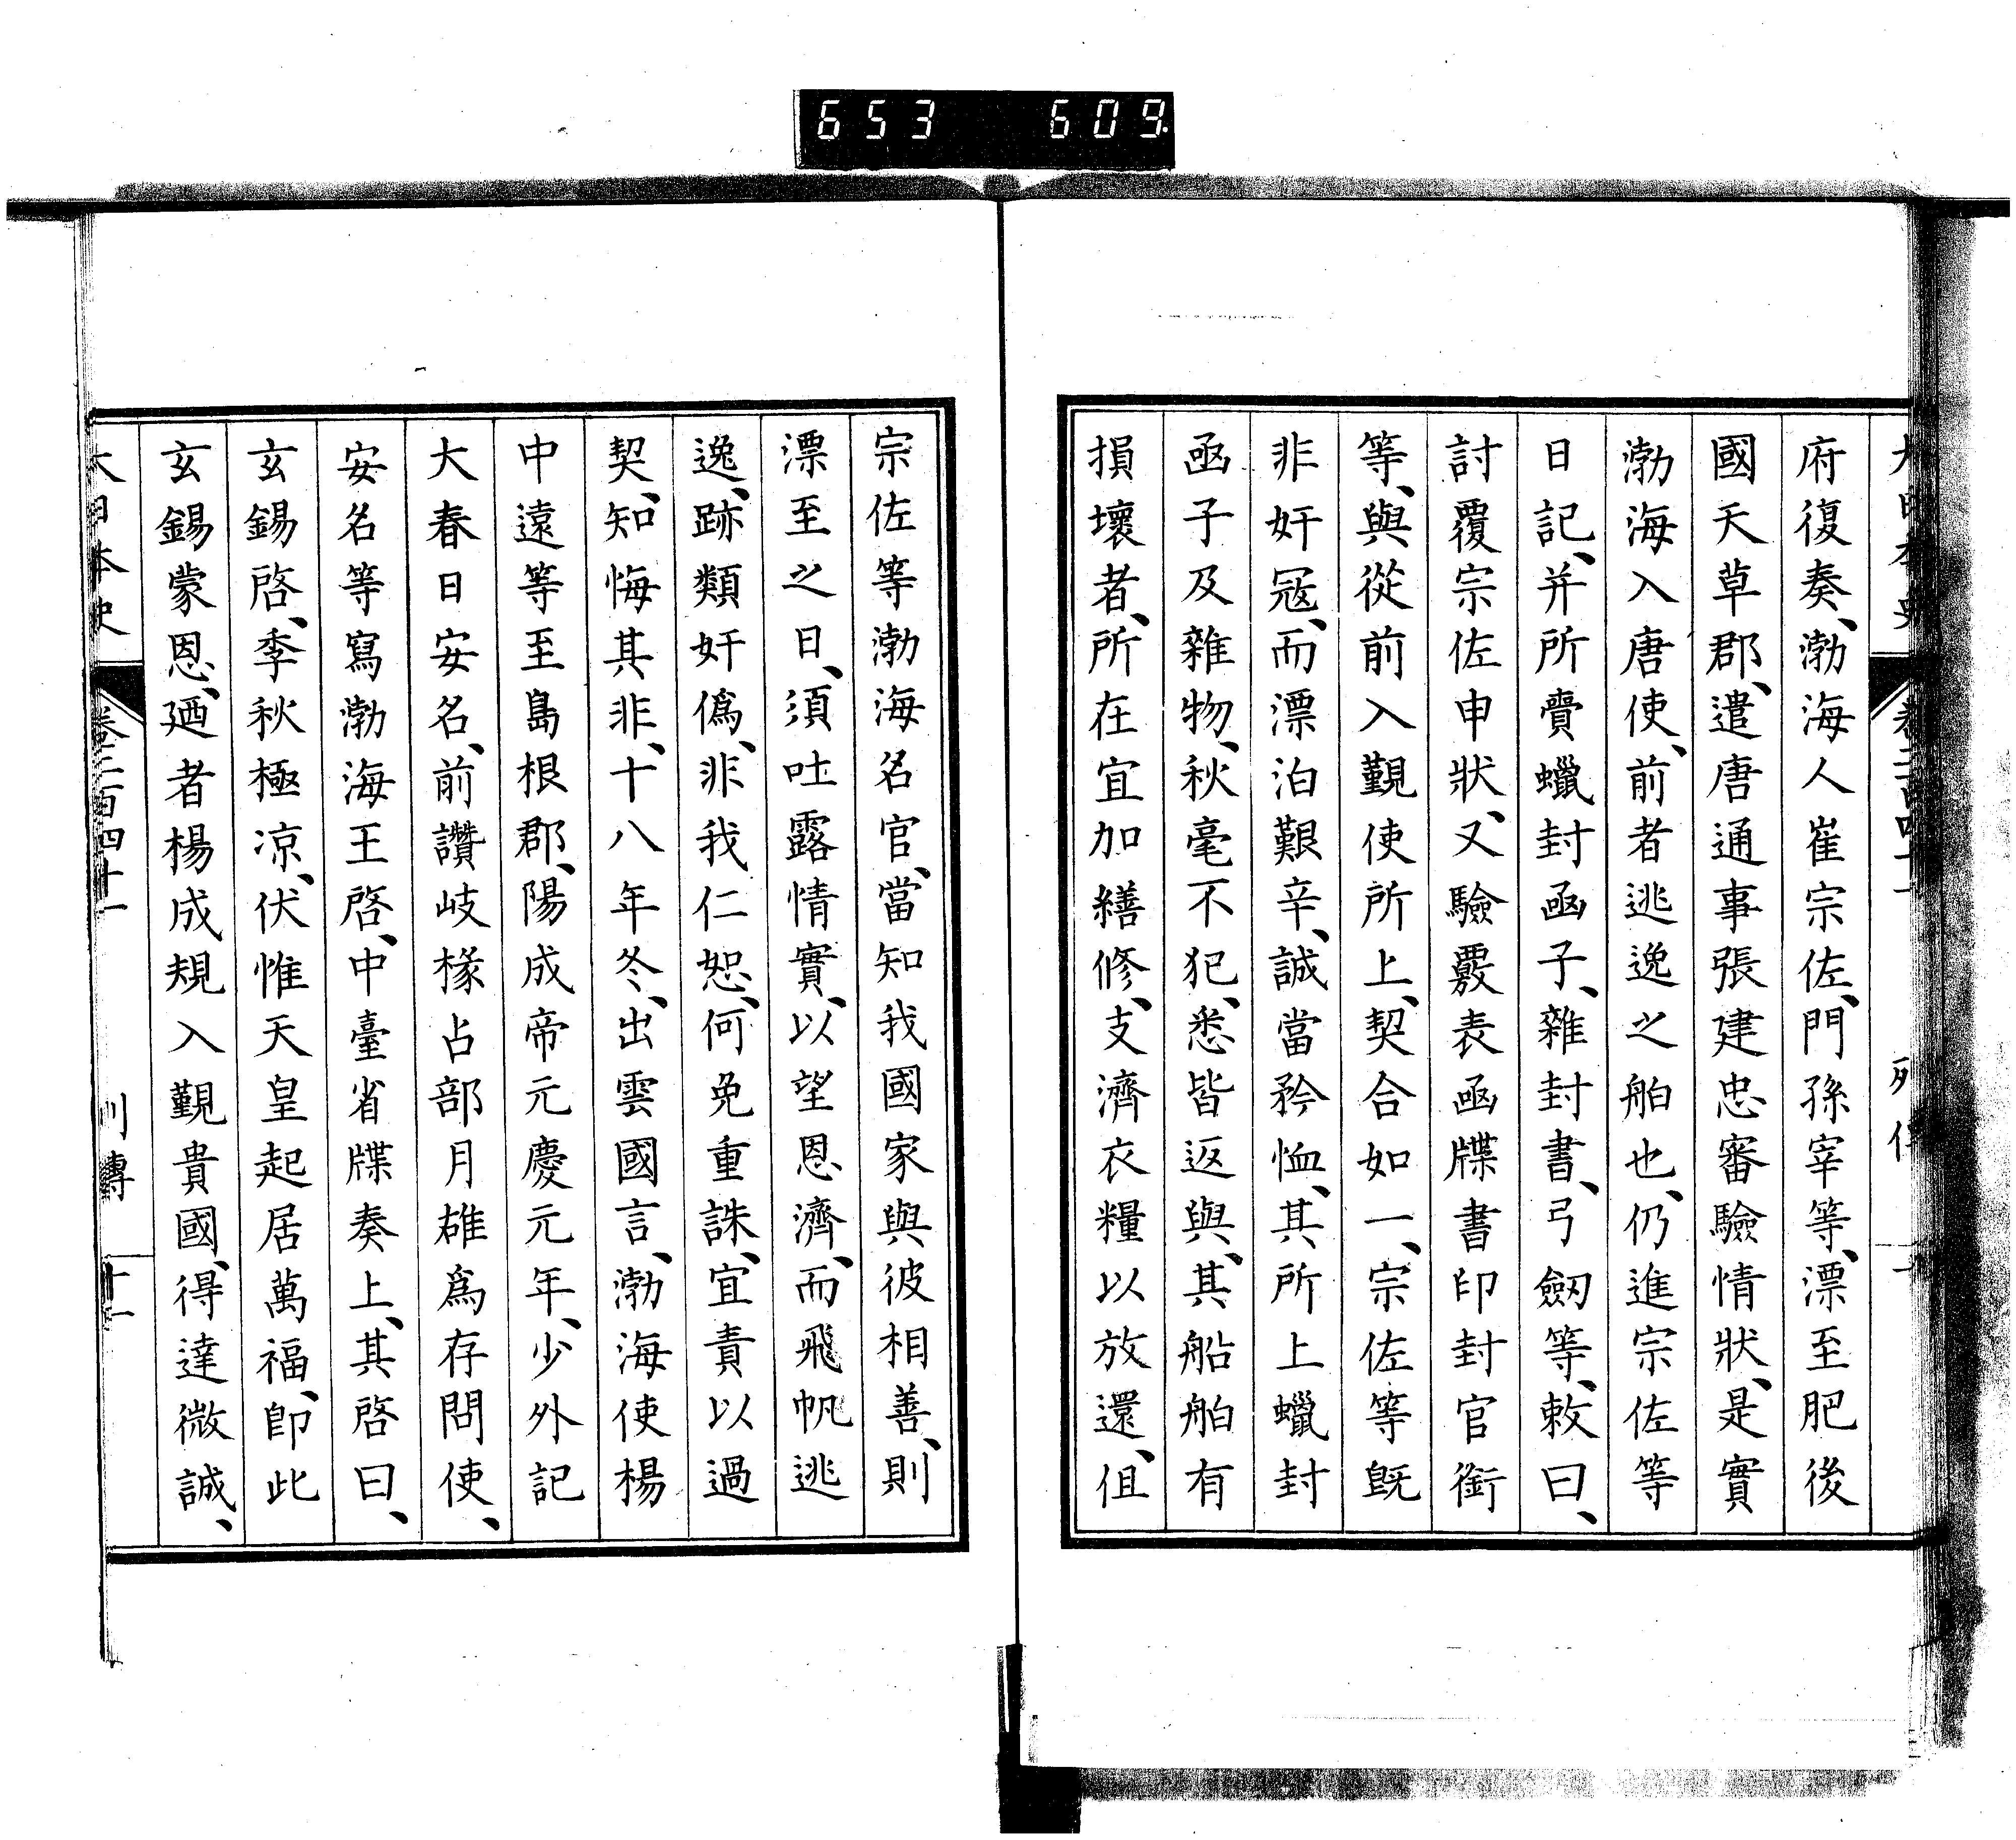 653 609.
府復奏、渤海人崔宗佐、門孫宰等、漂至肥後
國天草郡、遣唐通事張建忠審驗情狀、是實
渤海入唐使、前者逃逸之舶也、仍進宗佐等
日記、并所賷蠟封函子、雜封書、弓劔等、敕曰、
討覆宗佐申狀、又驗覈表函牒書印封官銜
等、與從前入覲使所上、契合如一、宗佐等旣
非奸寇、而漂泊艱辛、誠當矜恤、其所上蠟封
函子及雜物、秋毫不犯、悉皆返與、其船舶有
損壞者、所在宜加繕修、支濟衣糧以放還、但
宗佐等渤海名官、當知我國家與彼相善、則
漂至之日、須吐露情實、以望恩濟、而飛帆逃
逸、跡類奸僞、非我仁恕、何免重誅、宜責以過
契、知悔其非、十八年冬、出雲國言、渤海使楊
中遠等至島根郡、陽成帝元慶元年、少外記
大春日安名、前讚岐椽占部月雄爲存問使、
安名等寫渤海王啓、中臺省牒奏上、其啓曰、
玄錫啓、季秋極凉、伏惟天皇起居萬福、卽此
玄錫蒙恩、廼者楊成規入覲貴國、得達微誠、
大日本史 卷二百四十一 列傳 十一